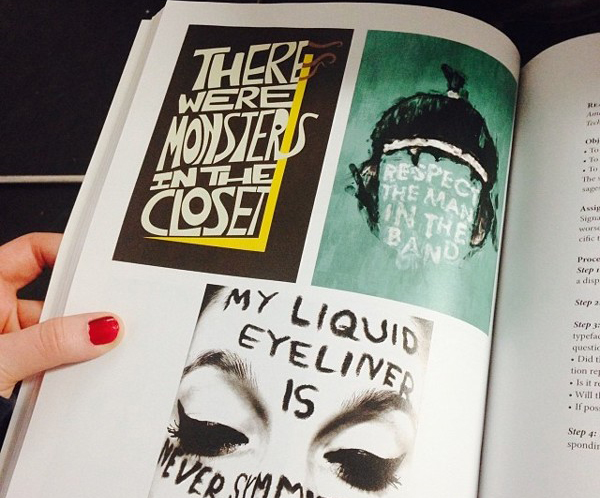 THERE
WERE
MONSTERS
IN THE
CLOSET
RESPECT
THE MAN
IN THE
BAND
MY LIQUID
EYELINER
IS
NEVER SYMM
Obj
• To
• To
• To
The s
sages
Assig
Signa
worse
cific t
Proce
Step 1
a disp
Step 2
Step 3:
typefac
questio
• Did t
tion rep
• Is it r
• Will th
• If poss
Step 4:
spondin